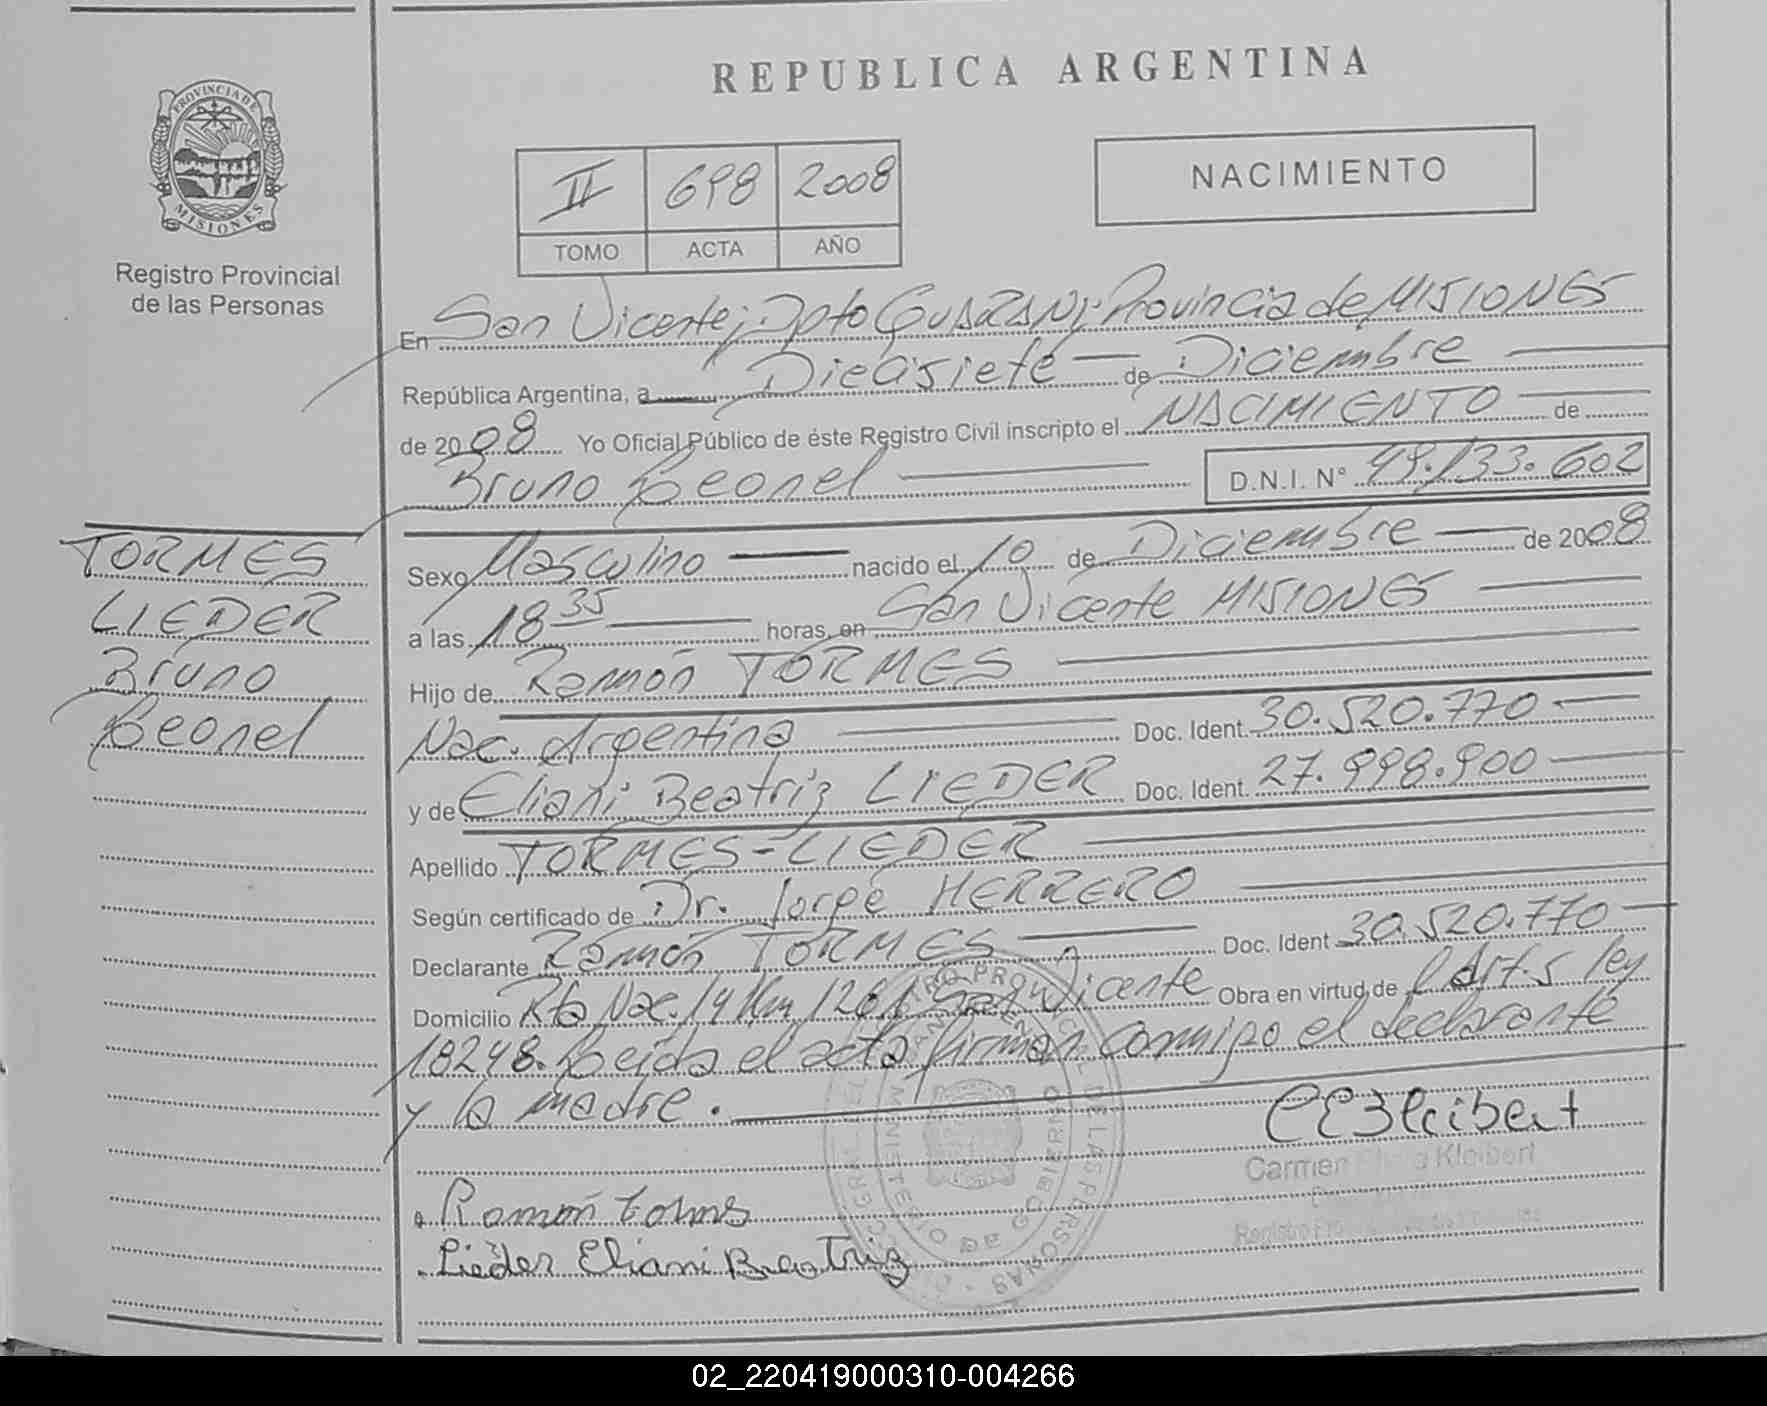 REPUBLICA ARGENTINA
PROVINCIA DE
MISIONES
Registro Provincial
de las Personas
II 698 2008
TOMO ACTA AÑO
NACIMIENTO
En San Vicente; Dpto GUARANI; Provincia de MISIONES
República Argentina, a Diecisiete de Diciembre
de 2008 Yo Oficial Público de éste Registro Civil inscripto el NACIMIENTO de
Bruno Leonel D.N.I. Nº 49.133.602
TORMES
LIEDER
Bruno
Leonel
Sexo Masculino nacido el 10 de Diciembre de 2008
a las 18 35 horas, en San Vicente MISIONES
Hijo de Ramón TORMES
Nac. Argentina Doc. Ident. 30.520.770
y de Eliani Beatriz LIEDER Doc. Ident. 27.998.900
Apellido TORMES-LIEDER
Según certificado de Dr. Jorge HERRERO
Declarante Ramón TORMES Doc. Ident 30.520.770
Domicilio Rta Nac. 14 Km 1261 San Vicente Obra en virtud de l Art. 5 ley
18248. Leida el acta firman conmigo el declarante
y la madre.
CEKleibert
Carmen Kleibert
Ramón tormes
Lieder Eliani Beatriz
MINISTERIO DE GOBIERNO
02_220419000310-004266